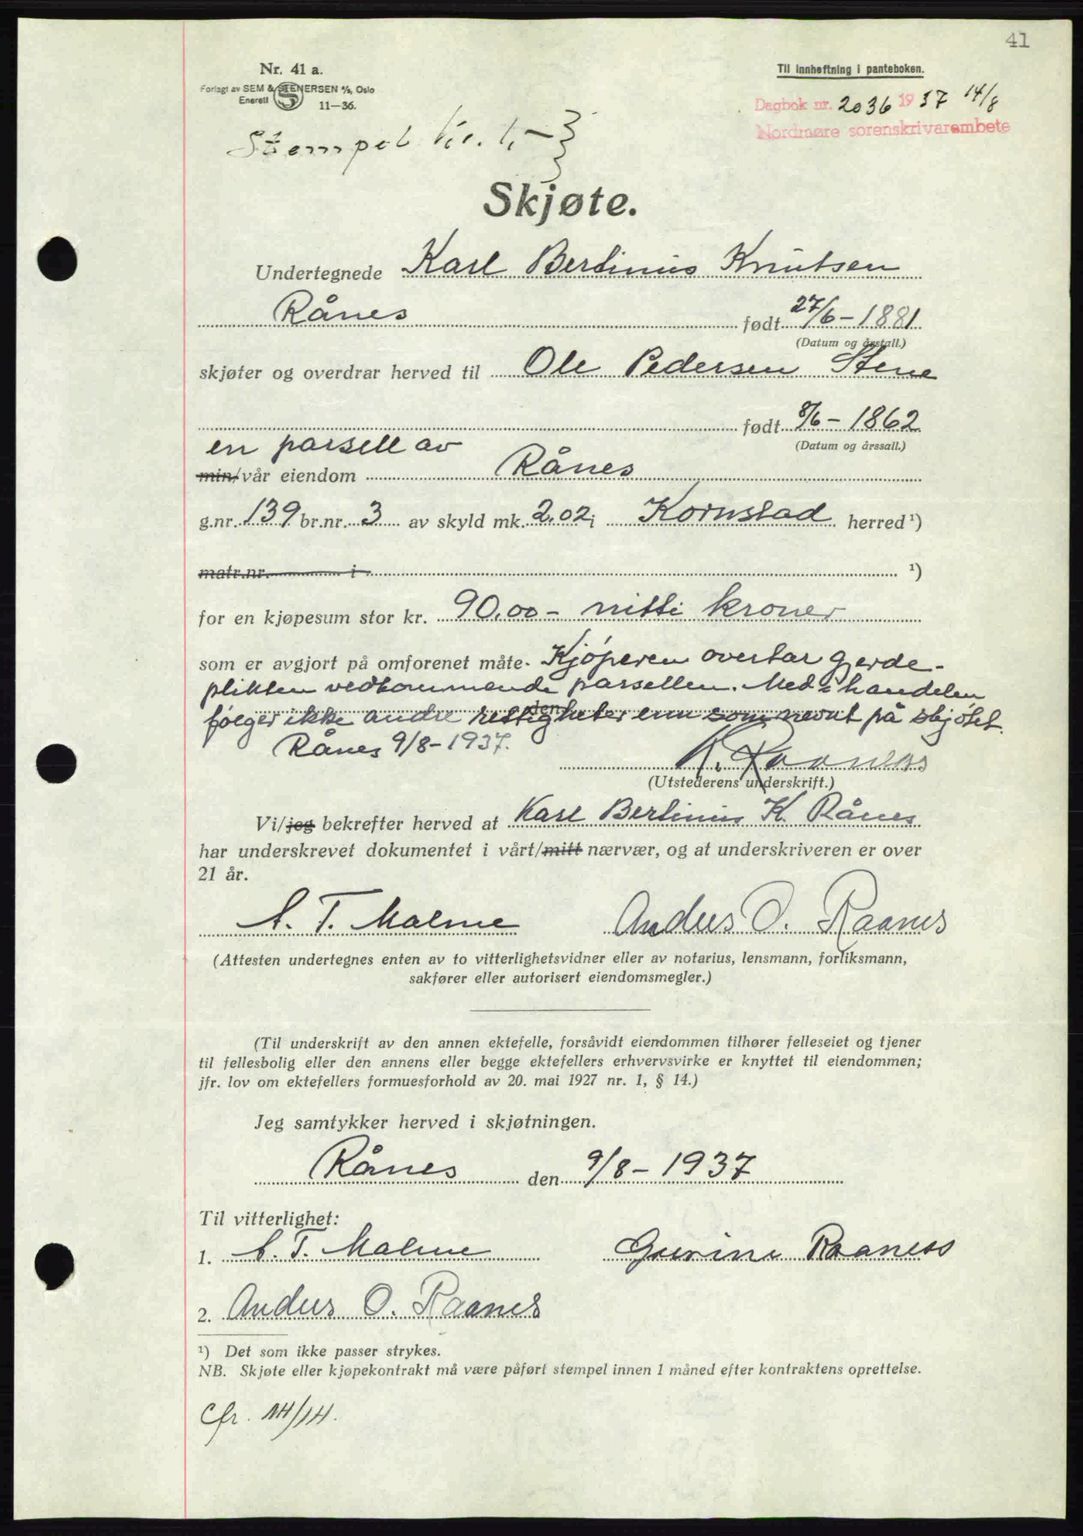 41
Nr. 41 a.
Forlagt av SEM & STENERSEN A/S, Oslo
Enerett S 11—36.
Til innheftning i panteboken.
Dagbok nr. 2036 1937 14/8
Nordmøre sorenskrivarembete
Stempel kr. 1,-
Skjøte.
Undertegnede Karl Bertinius Knutsen
Rånes født 27/6 - 1881
(Datum og årstall.)
skjøter og overdrar herved til Ole Pedersen Stene
født 8/6 - 1862
(Datum og årssall.)
en parsell av
min/vår eiendom Rånes
g.nr. 139 br.nr. 3 av skyld mk. 2.02 i Kornstad herred ¹)
matr.nr. i ¹)
for en kjøpesum stor kr. 90.00 - nitti kroner
som er avgjort på omforenet måte. Kjøperen overtar gjerde-
plikten vedkommende parsellen. Med handelen
følger ikke andre rettigheter enn som nevnt på skjøtet.
Rånes 9/8 - 1937. K. Raaness
(Utstederens underskrift.)
Vi/jeg bekrefter herved at Karl Bertinius K. Rånes
har underskrevet dokumentet i vårt/mitt nærvær, og at underskriveren er over
21 år.
A. T. Malme Anders O. Raanes
(Attesten undertegnes enten av to vitterlighetsvidner eller av notarius, lensmann, forliksmann,
sakfører eller autorisert eiendomsmegler.)
(Til underskrift av den annen ektefelle, forsåvidt eiendommen tilhører felleseiet og tjener
til fellesbolig eller den annens eller begge ektefellers erhvervsvirke er knyttet til eiendommen;
jfr. lov om ektefellers formuesforhold av 20. mai 1927 nr. 1, § 14.)
Jeg samtykker herved i skjøtningen.
Rånes den 9/8 - 1937
Til vitterlighet:
1. A. T. Malme Gurine Raaness
2. Anders O. Raanes
¹) Det som ikke passer strykes.
NB. Skjøte eller kjøpekontrakt må være påført stempel innen 1 måned efter kontraktens oprettelse.
Cfr. 14/14.